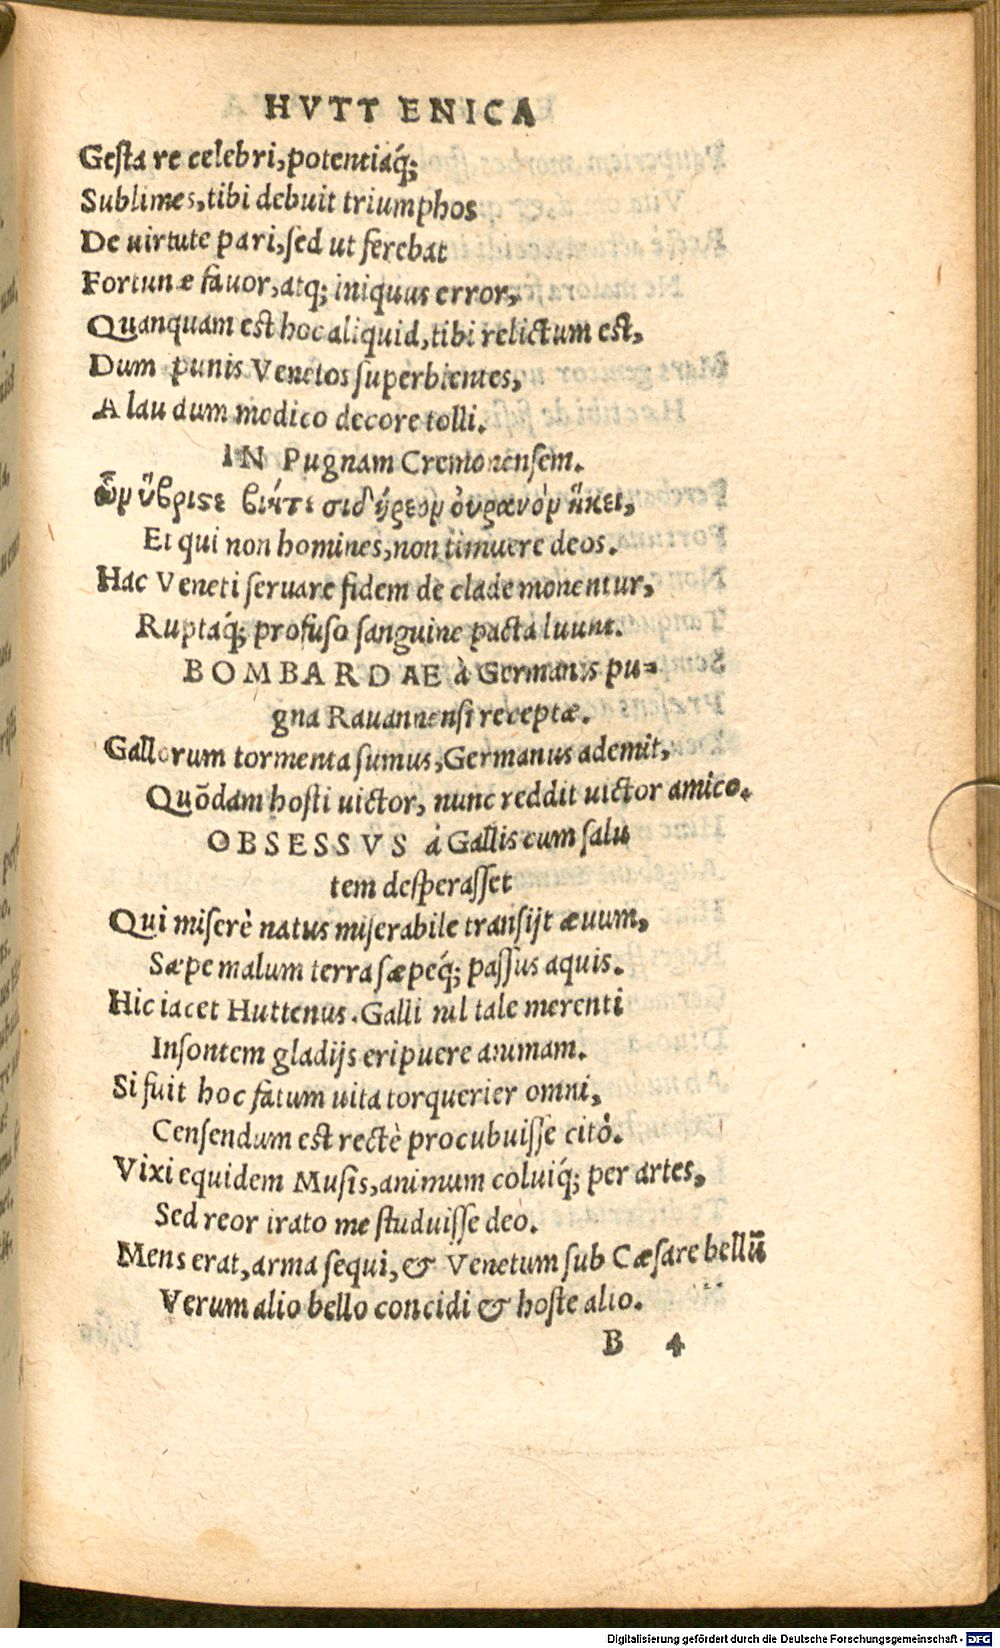 HVTT ENICA
Gesta re celebri, potentiaq́;
Sublimes, tibi debuit triumphos
De uirtute pari, sed ut ferebat
Fortunæ fauor, atq; iniquus error,
Quanquam est hoc aliquid, tibi relictum est,
Dum punis Venetos superbientes,
A laudum modico decore tolli.
IN Pugnam Cremonensem.
ὕβρισε σιδήρεον οὐρανὸν ἥκει,
Et qui non homines, non timuere deos.
Hac Veneti seruare fidem de clade monentur,
Ruptaq́; profuso sanguine pacta luunt.
BOMBARDAE à Germanis pu=
gna Rauannensi receptæ.
Gallorum tormenta sumus, Germanus ademit,
Quōdam hosti uictor, nunc reddit uictor amico.
OBSESSVS á Gallis cum salu
tem desperasset
Qui miserè natus miserabile transijt æuum,
Sæpe malum terra sæpeq́; passus aquis.
Hic iacet Huttenus. Galli nil tale merenti
Insontem gladijs eripuere animam.
Si fuit hoc fatum uita torquerier omni,
Censendum est rectè procubuisse citò.
Vixi equidem Musis, animum coluiq́; per artes,
Sed reor irato me studuisse deo.
Mens erat, arma sequi, & Venetum sub Cæsare bellū
Verum alio bello concidi & hoste alio.
B 4
Digitalisierung gefördert durch die Deutsche Forschungsgemeinschaft - DFG